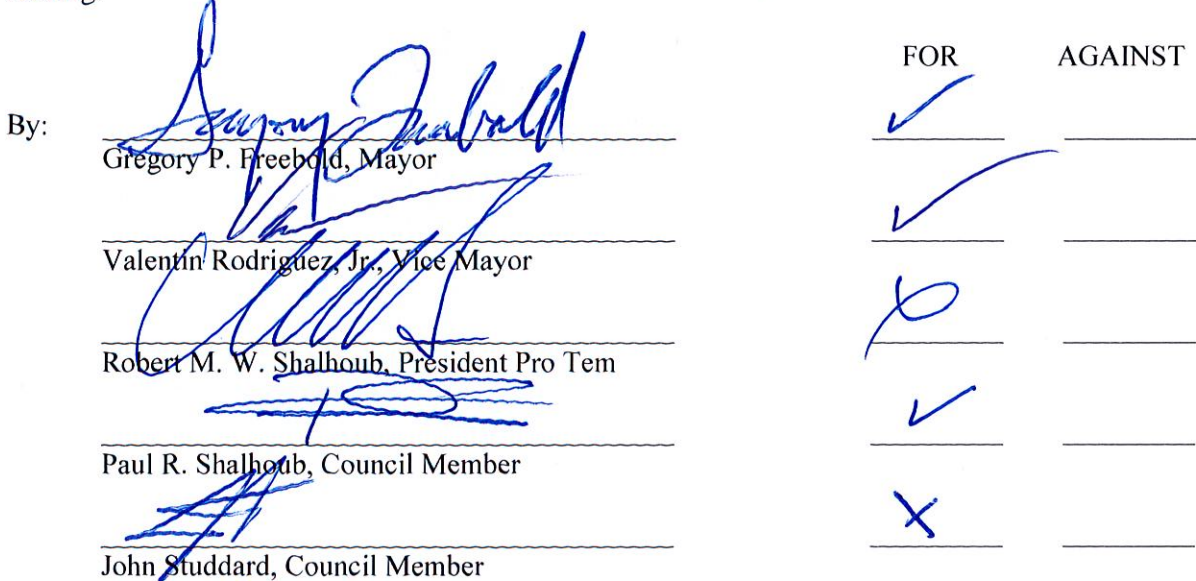 FOR AGAINST
By:
Gregory P. Freebold, Mayor
Valentin Rodriguez, Jr., Vice Mayor
Robert M. W. Shalhoub, President Pro Tem
Paul R. Shalhoub, Council Member
John Studdard, Council Member